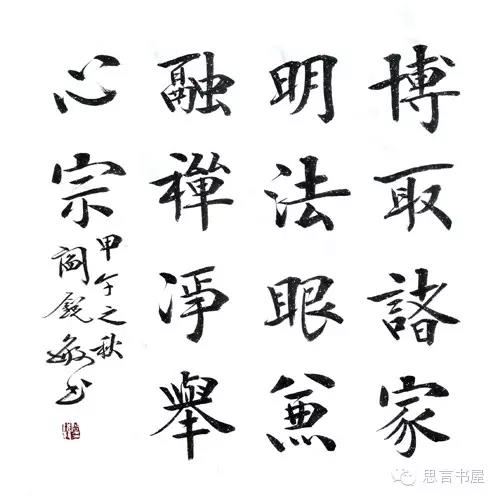 博取諸家
明法眼兼
融禪淨舉
心宗
甲午之秋
閻銳敏书
思言书屋